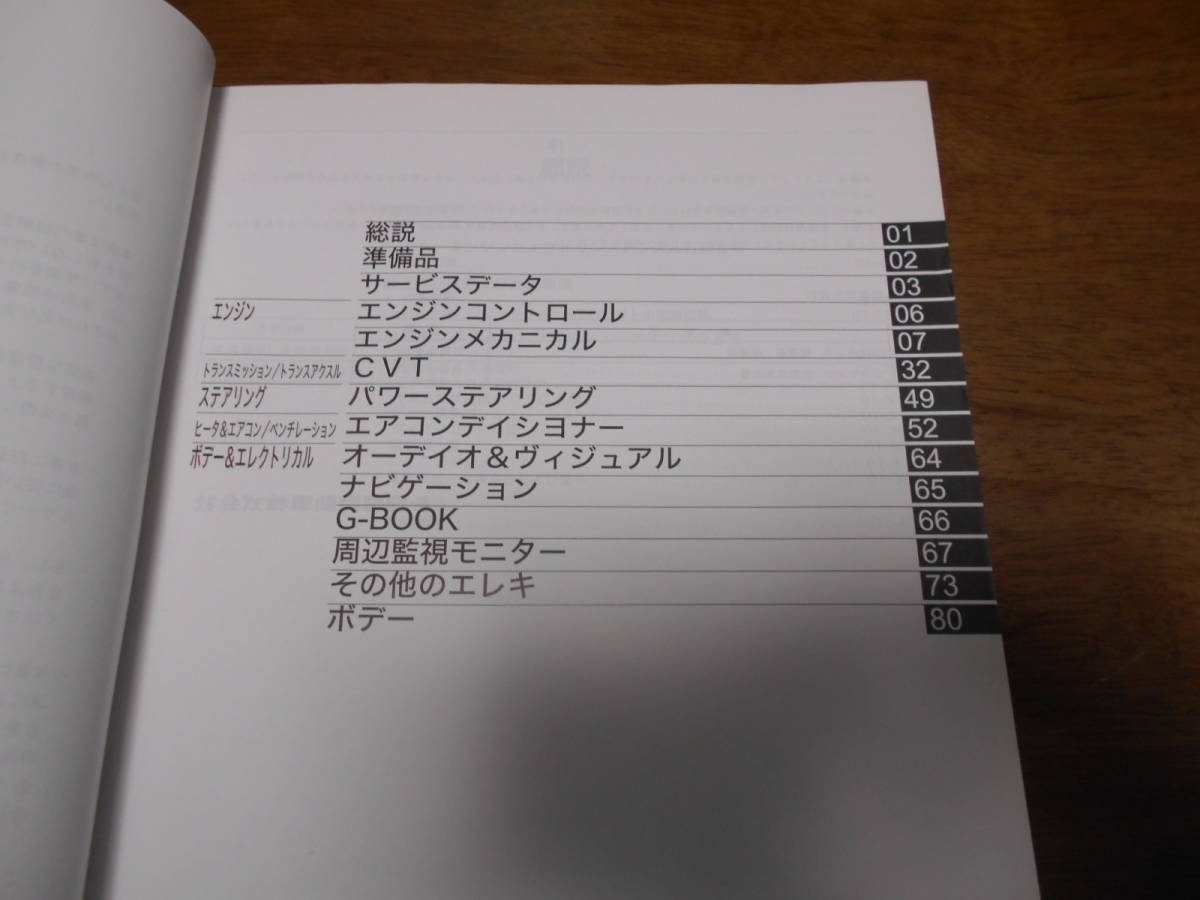 総説 01
準備品 02
サービスデータ 03
エンジン エンジンコントロール 06
エンジンメカニカル 07
トランスミッション/トランスアクスル CVT 32
ステアリング パワーステアリング 49
ヒータ&エアコン/ベンチレーション エアコンデイシヨナー 52
ボデー&エレクトリカル オーデイオ&ヴィジュアル 64
ナビゲーション 65
G-BOOK 66
周辺監視モニター 67
その他のエレキ 73
ボデー 80